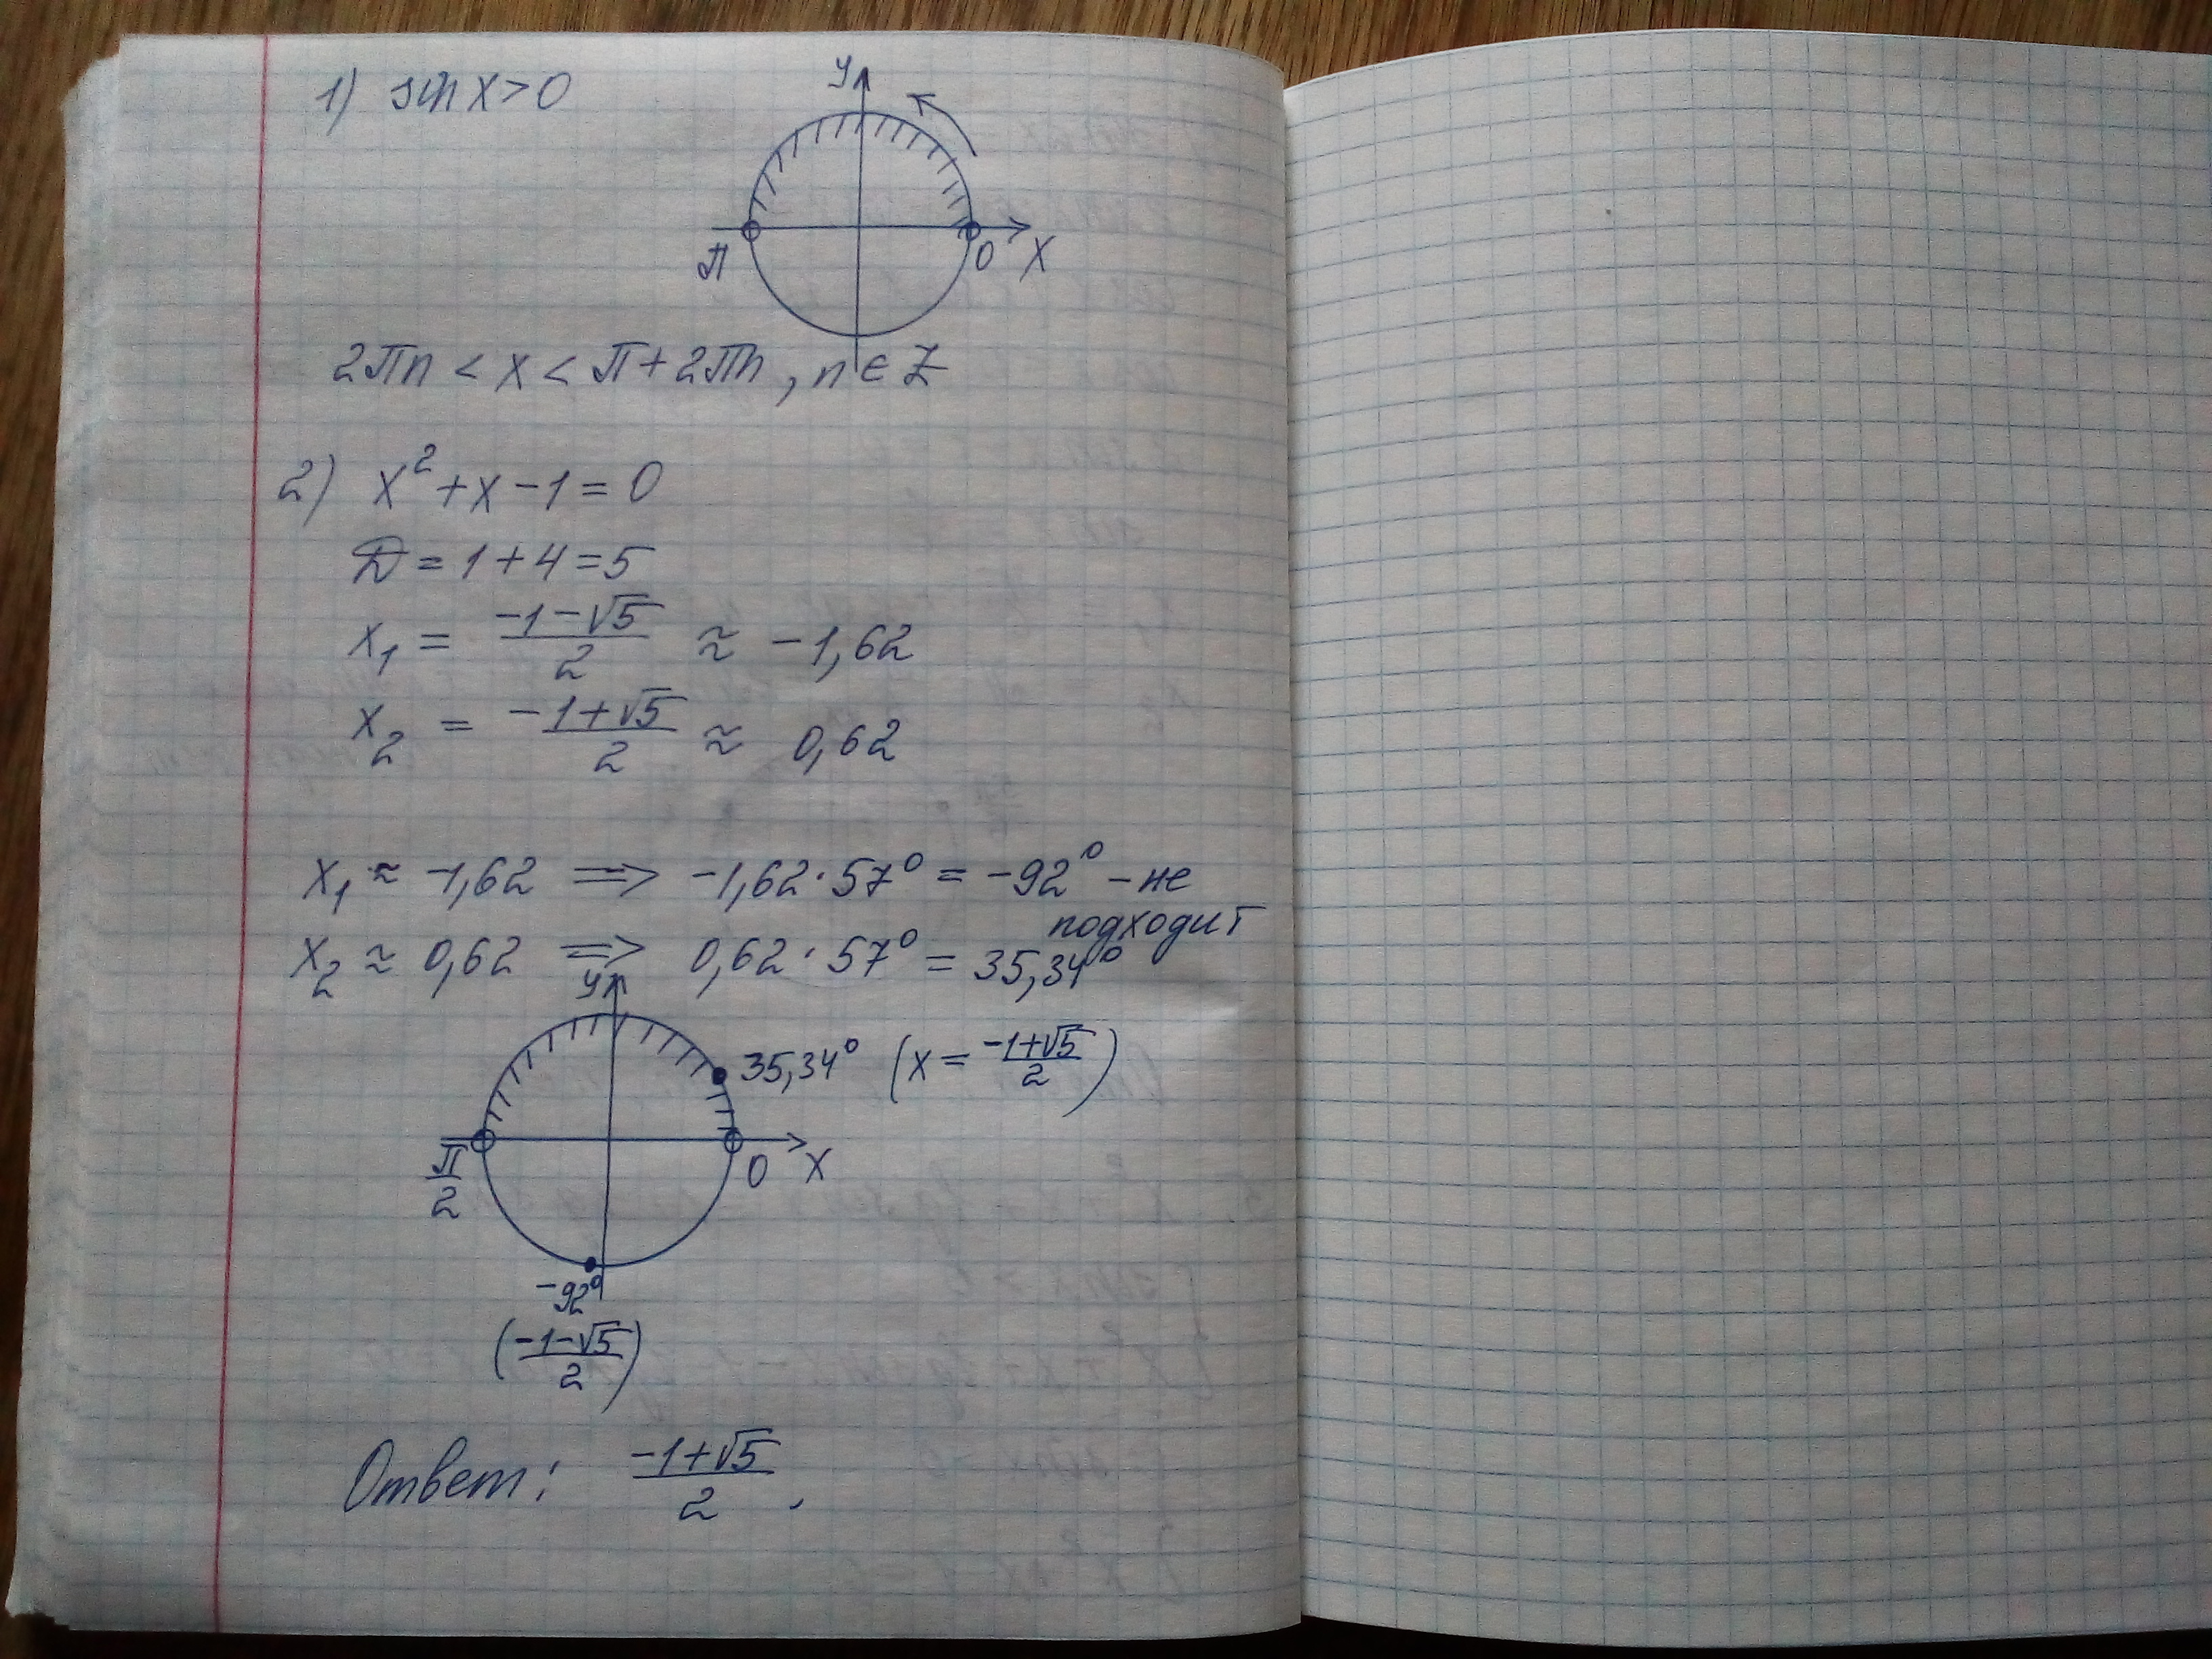 1) sin x > 0
y
π
0
x
2πn < x < π + 2πn, n ∈ Z
2) x² + x - 1 = 0
D = 1 + 4 = 5
x₁ = (-1 - √5)/2 ≈ -1,62
x₂ = (-1 + √5)/2 ≈ 0,62
x₁ ≈ -1,62 => -1,62 · 57° = -92° - не
подходит
x₂ ≈ 0,62 => 0,62 · 57° = 35,34°
y
35,34° (x = (-1 + √5)/2)
π/2
0
x
-92°
((-1 - √5)/2)
Ответ: (-1 + √5)/2.